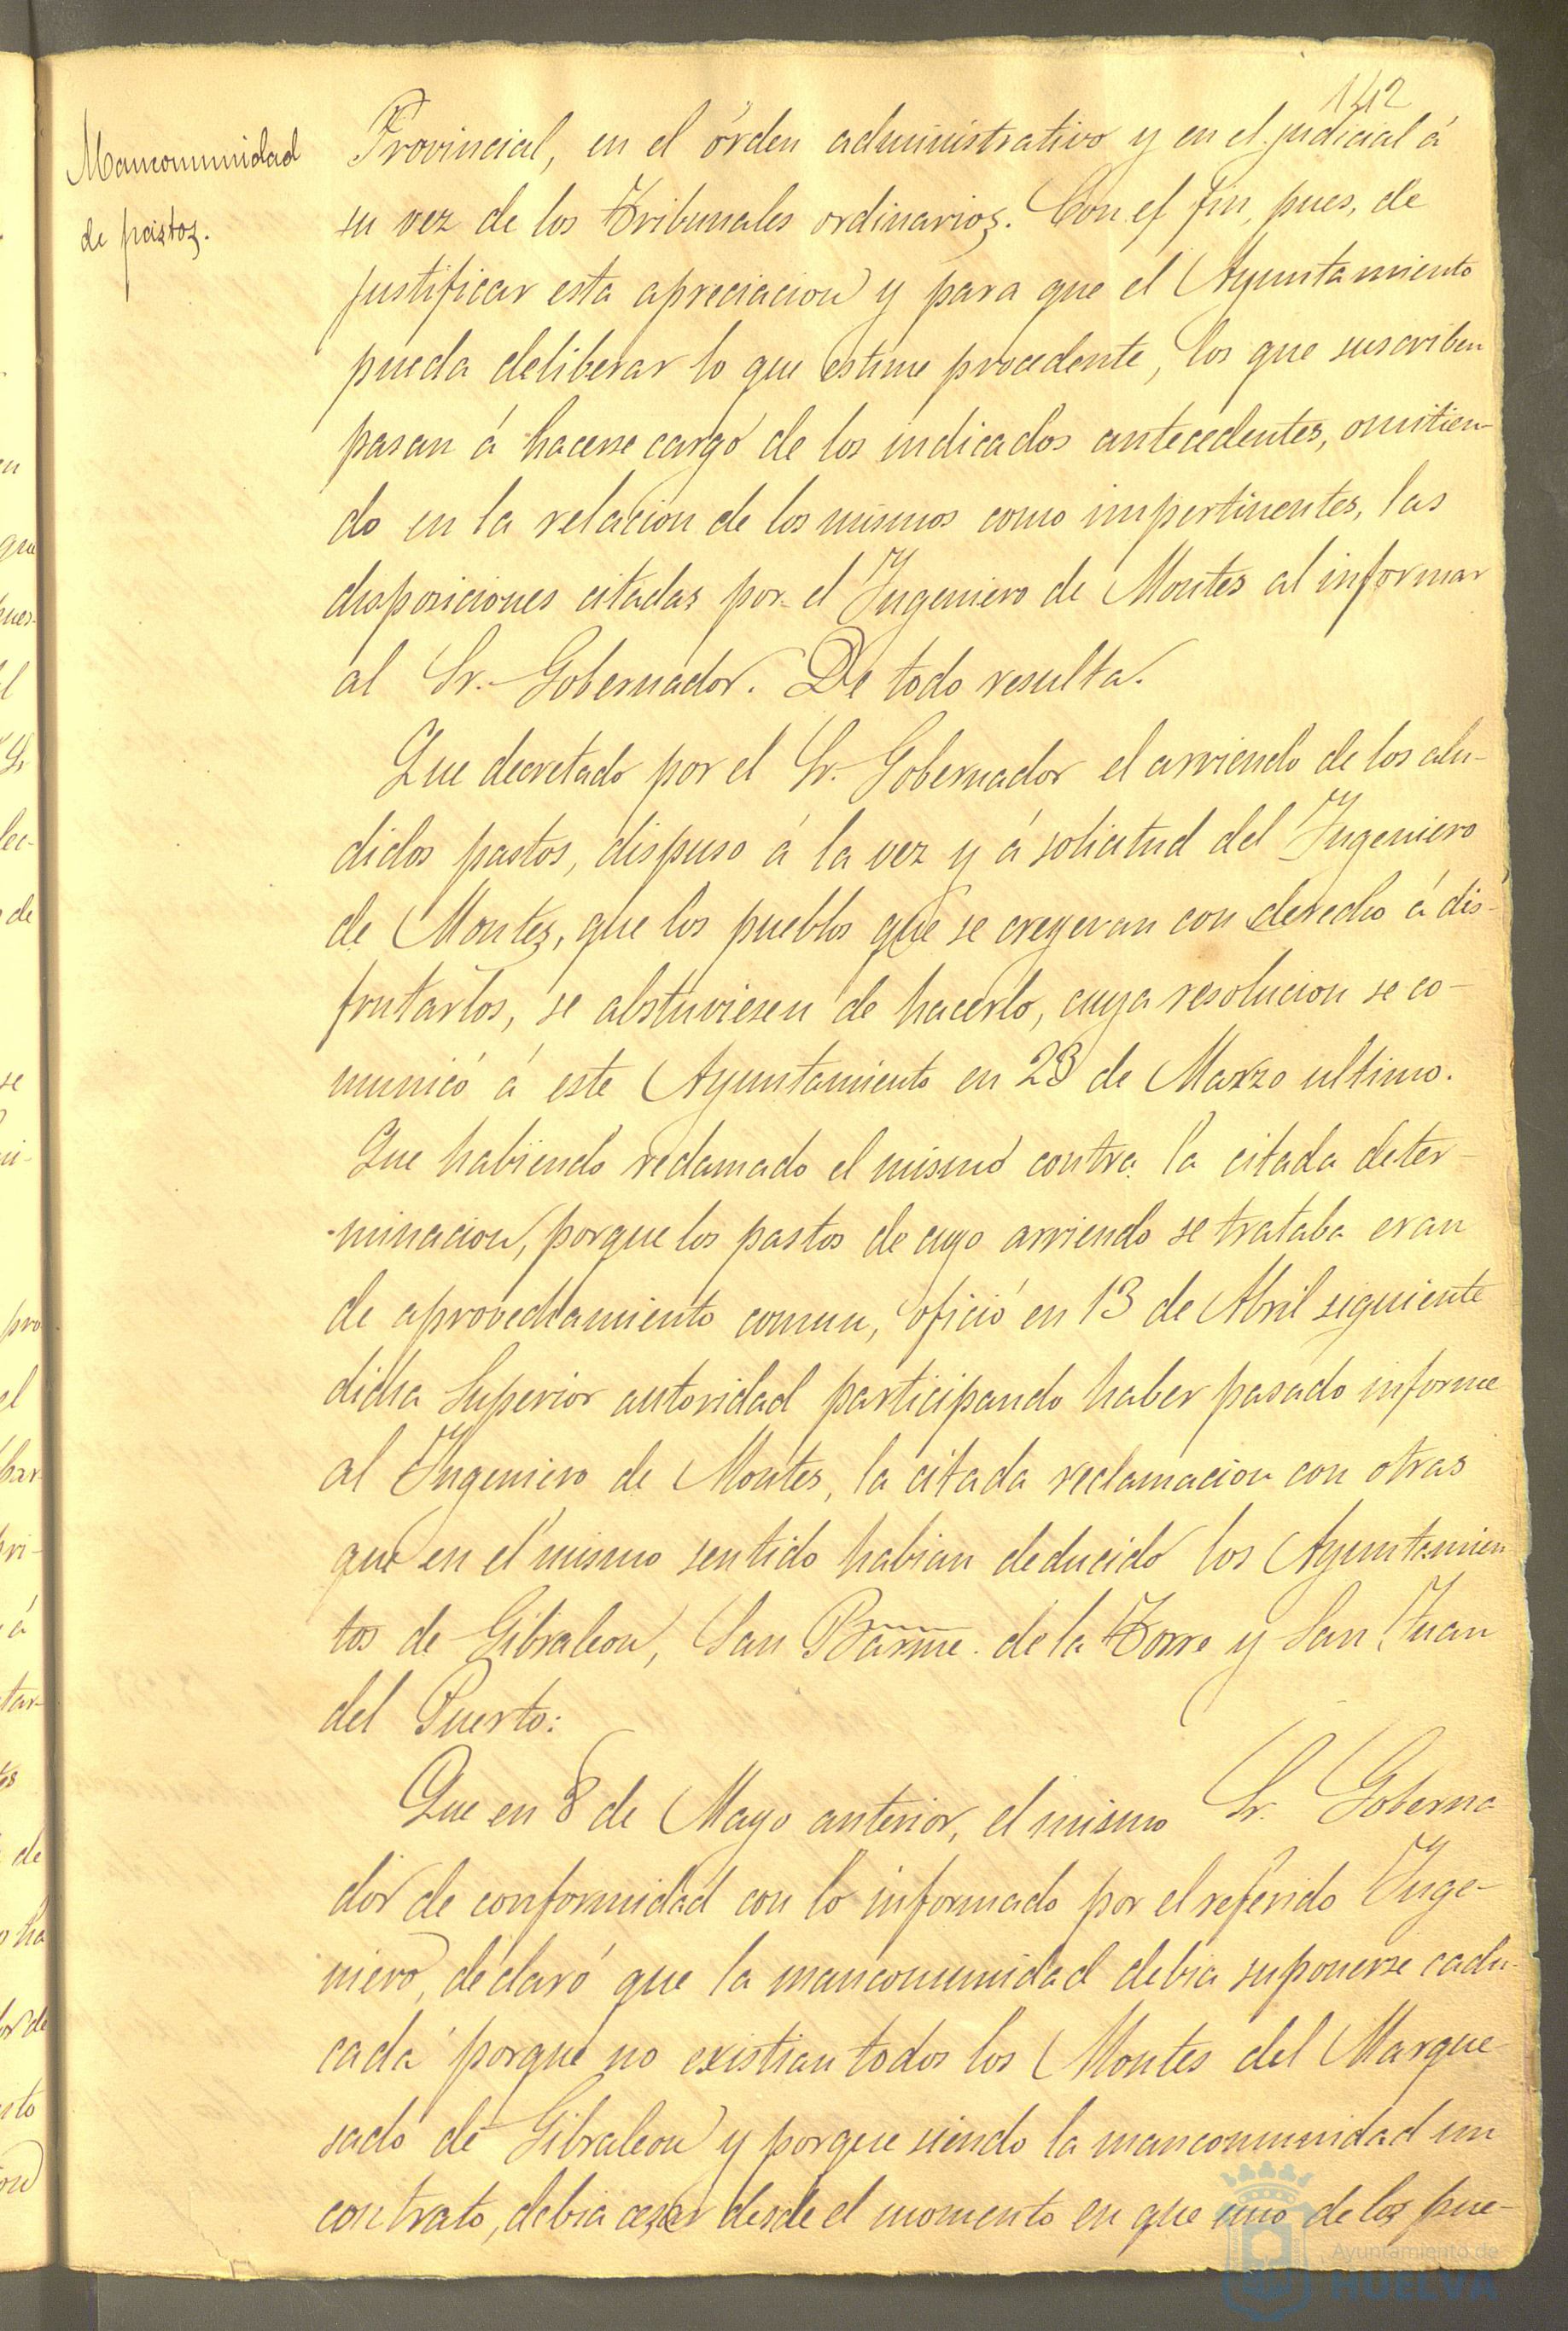 142
Mancomunidad
de pastos.
Provincial, en el órden administrativo y en el judicial á
su vez de los Tribunales ordinarios. Con el fin, pues, de
justificar esta apreciacion y para que el Ayuntamiento
pueda deliberar lo que estime procedente, los que suscriben
pasan á hacerse cargo de los indicados antecedentes, omitien-
do en la relacion de los mismos como impertinentes, las
disposiciones citadas por el Ingeniero de Montes al informar
al Sr. Gobernador. De todo resulta.
Que decretado por el Sr. Gobernador el arriendo de los alu-
didos pastos, dispuso á la vez y á solicitud del Ingeniero
de Montes, que los pueblos que se creyeran con derecho á dis-
frutarlos, se abstuviesen de hacerlo, cuya resolucion se co-
municó á este Ayuntamiento en 23 de Marzo ultimo.
Que habiendo reclamado el mismo contra la citada deter-
minacion, porque los pastos de cuyo arriendo se trataba eran
de aprovechamiento comun, ofició en 13 de Abril siguiente
dicha Superior autoridad participando haber pasado informe
al Ingeniero de Montes, la citada reclamacion con otras
que en el mismo sentido habian deducido los Ayuntamien
tos de Gibraleon, San Barme. de la Torre y San Juan
del Puerto:
Que en 8 de Mayo anterior, el mismo Sr. Goberna
dor de conformidad con lo informado por el referido Inge-
niero, declaró que la mancomunidad debia suponerse cadu-
cada porque no existian todos los Montes del Marque-
sado de Gibraleon y porque siendo la mancomunidad un
contrato, debia cesar desde el momento en que uno de los pue-
Ayuntamiento de
HUELVA